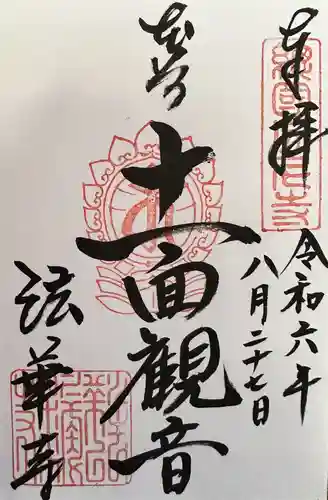 奉拝
令和六年
八月二十七日
十一面観音
法華寺